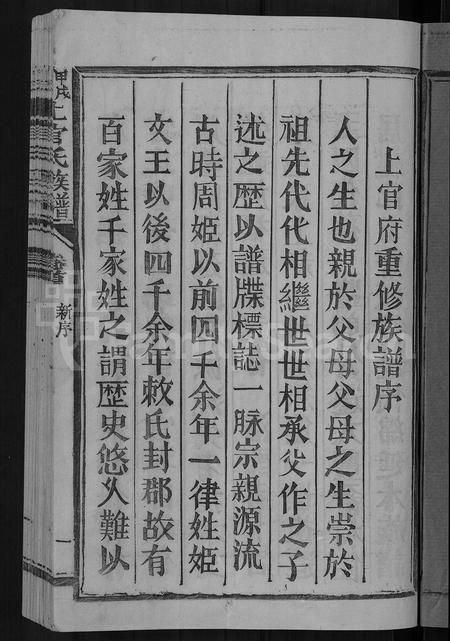 上官府重修族譜序
人之生也親於父母父母之生崇於
祖先代代相繼世世相承父作之子
述之歷以譜牒標誌一脉宗親源流
古時周姬以前四千余年一律姓姬
文王以後四千余年敕氏封郡故有
百家姓千家姓之謂歷史悠久難以
甲戌上官氏族譜
卷首
新序
一